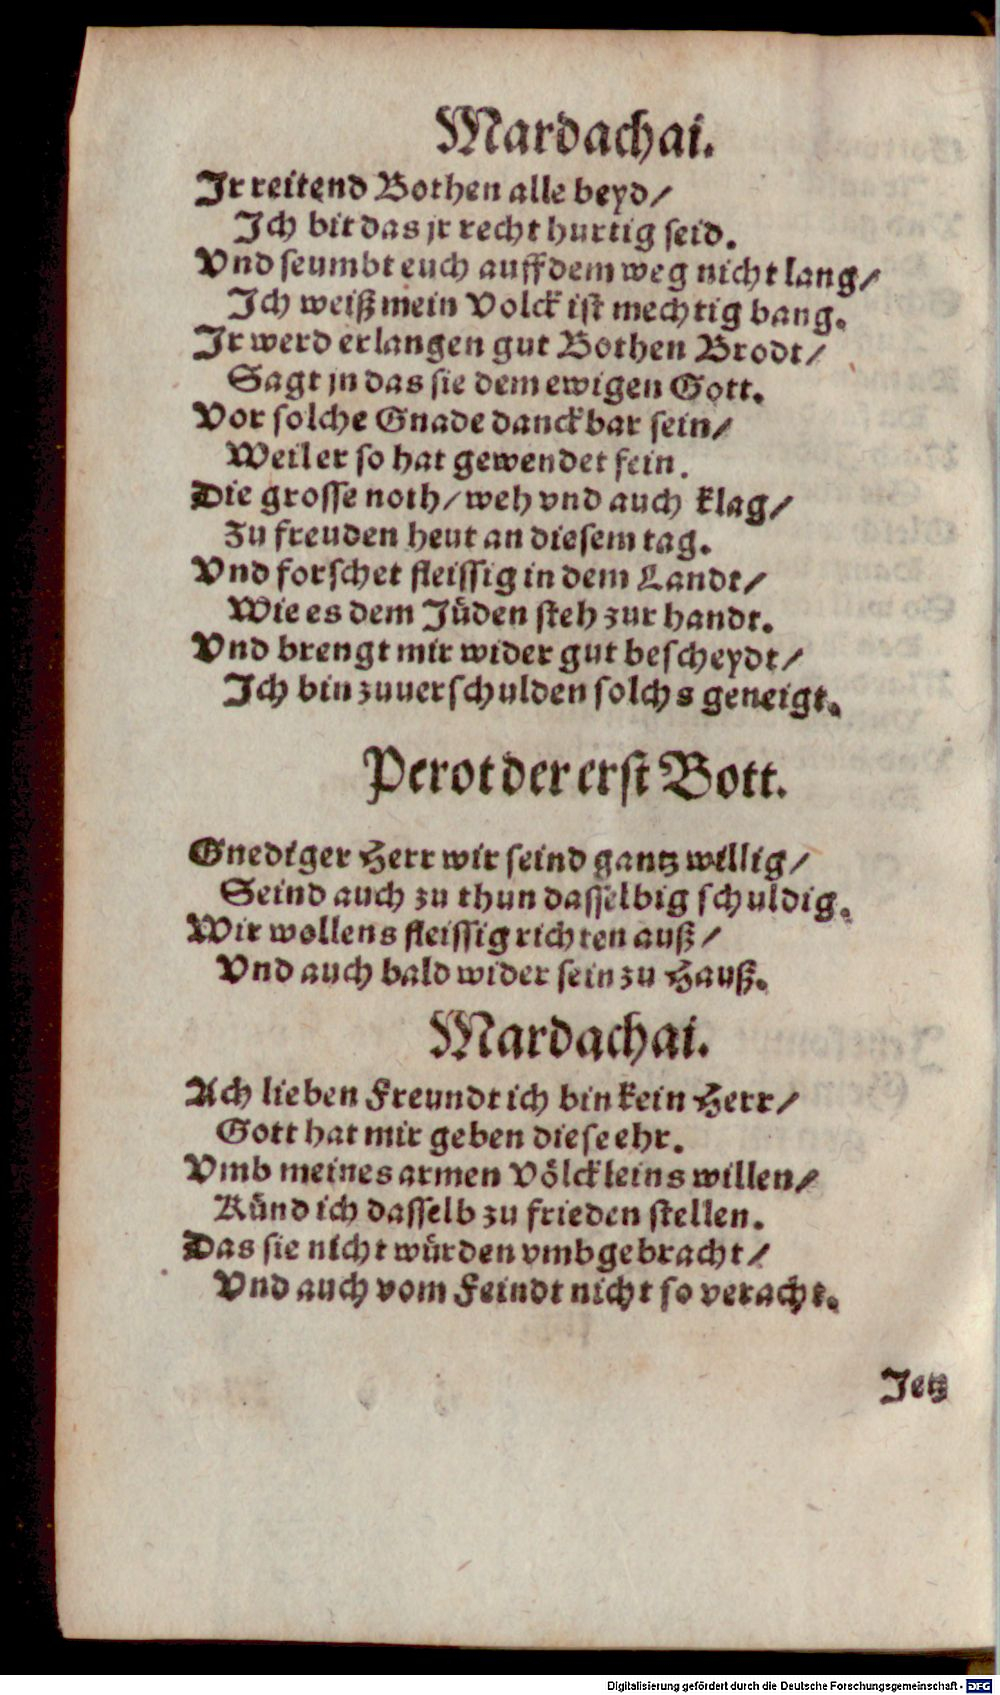 Mardachai.
Ir reitend Bothen alle beyd/
Ich bit das jr recht hurtig seid.
Vnd seumbt euch auff dem weg nicht lang/
Ich weiß mein Volck ist mechtig bang.
Ir werd erlangen gut Bothen Brodt/
Sagt jn das sie dem ewigen Gott.
Vor solche Gnade danckbar sein/
Weil er so hat gewendet fein.
Die grosse noth/ weh vnd auch klag/
Zu freuden heut an diesem tag.
Vnd forschet fleissig in dem Landt/
Wie es dem Jüden steh zur handt.
Vnd brengt mir wider gut bescheydt/
Ich bin zuuerschulden solchs geneigt.
Perot der erst Bott.
Gnediger Herr wir seind gantz willig/
Seind auch zu thun dasselbig schuldig.
Wir wollens fleissig richten auß/
Vnd auch bald wider sein zu Hauß.
Mardachai.
Ach lieben Freundt ich bin kein Herr/
Gott hat mir geben diese ehr.
Vmb meines armen Völckleins willen/
Künd ich dasselb zu frieden stellen.
Das sie nicht würden vmbgebracht/
Vnd auch vom Feindt nicht so veracht.
Jetz
Digitalisierung gefördert durch die Deutsche Forschungsgemeinschaft - DFG